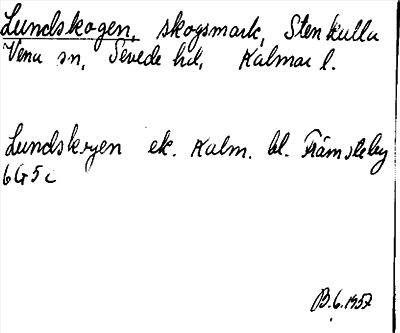 Lundskogen, skogsmark, Stenkulla
Vena sn, Sevede hd, Kalmar l.
Lundskogen ek. Kalm. bl. Främsteby
6G5c
B. 6. 1957